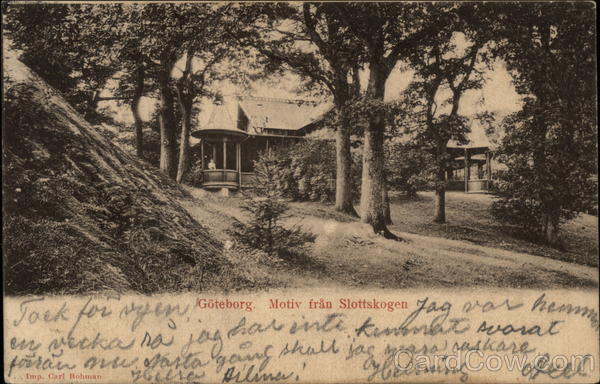 Göteborg. Motiv från Slottskogen
Tack för vyen! Jag var hemma
en vecka så jag har inte kunnat svarat
förän nu nästa gång skall jag vara raskare
Helsa Hilma! Helsning
... Imp. Carl Bohman
CardCow.com